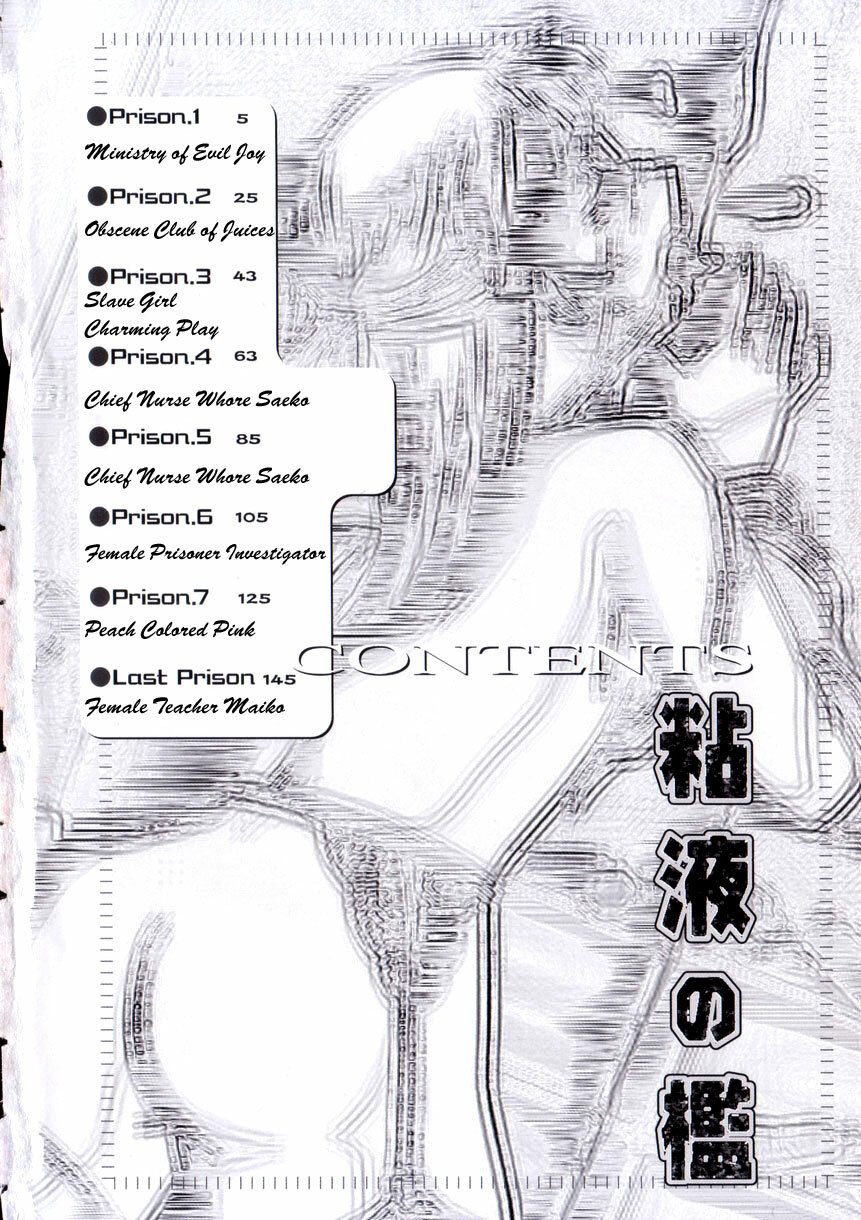 ●Prison.1 5
Ministry of Evil Joy
●Prison.2 25
Obscene Club of Juices
●Prison.3 43
Slave Girl
Charming Play
●Prison.4 63
Chief Nurse Whore Saeko
●Prison.5 85
Chief Nurse Whore Saeko
●Prison.6 105
Female Prisoner Investigator
●Prison.7 125
Peach Colored Pink
●Last Prison 145
Female Teacher Maiko
CONTENTS
粘液の檻